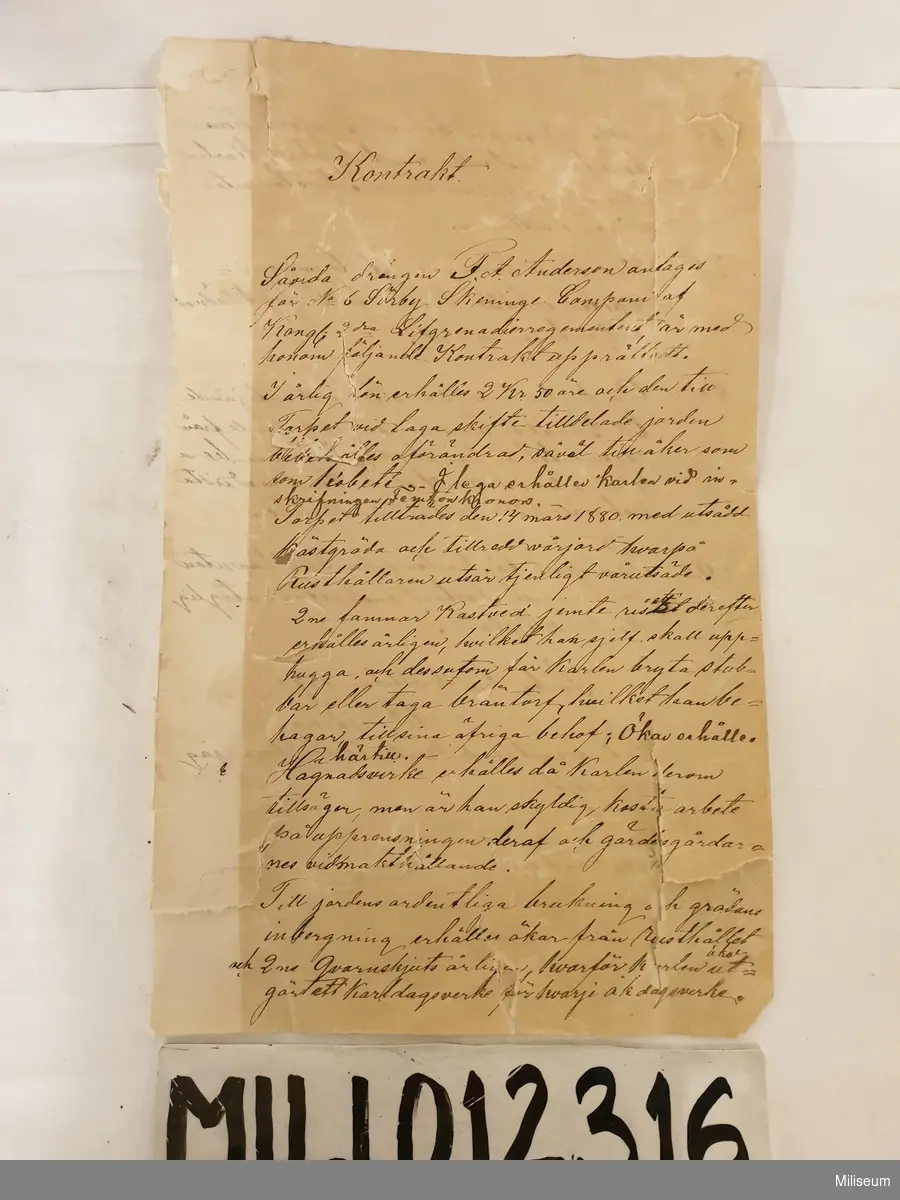 Kontrakt.
Såvida drängen F. A. Anderson antages
för No 6 Sörby Skeninge Compani af
Kongl. 2dra Lifgrenadierregementent är med
honom följande Kontrakt upprättadt.
I årlig lön erhålles 2 Kr 50 öre och den till
Torpet vid laga skifte tilldelade jorden
bibehålles oförändrad, såväl till åker som
som till bete. I lega erhåller karlen vid in-
skrifningen Femton Kronor.
Torpet tillträdes den 14 mars 1880. med utsådd
höstgröda och tillredd vårjord hvarpå
Rusthållaren utsår tjenligt vårutsäde.
2ne famnar Kastved jemte riset derefter
erhålles årligen, hvilket han sjelf skall upp=
hugga, och dessutom får Karlen bryta stub-
bar eller taga bräntorf, hvilket han be=
hagar, till sina öfriga behof; Ökar erhålles
härtill.
Hagnadsvirke erhålles då Karlen derom
tillsäger, men är han skyldig arbete
på upprensningen deraf och gärdesgårdar-
nes vidmakthållande.
Till jordens ordentliga brukning och grödans
inbergning erhålles ökar från rusthållet
och 2ne Qvarnskjuts årligen, hvarför karlen ut=
gör ett Karldagsverke för hvarje ökdagsverke.
MILI 012 316
Miliseum